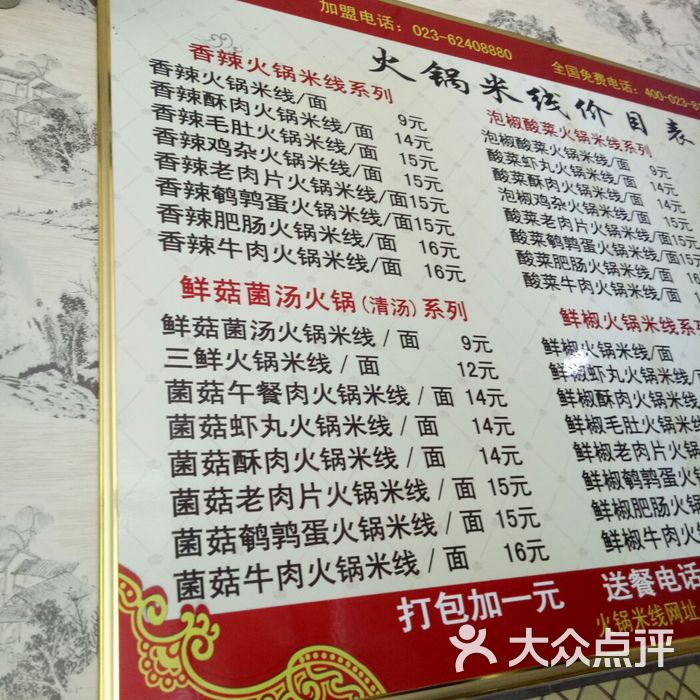 加盟电话：023-62408880
全国免费电话：400-023-8
火锅米线价目表
香辣火锅米线系列
香辣火锅米线/面 9元
香辣酥肉火锅米线/面 14元
香辣毛肚火锅米线/面 15元
香辣鸡杂火锅米线/面 15元
香辣老肉片火锅米线/面15元
香辣鹌鹑蛋火锅米线/面15元
香辣肥肠火锅米线/面 16元
香辣牛肉火锅米线/面 16元
鲜菇菌汤火锅(清汤)系列
鲜菇菌汤火锅米线/面 9元
三鲜火锅米线/面 12元
菌菇午餐肉火锅米线/面 14元
菌菇虾丸火锅米线/面 14元
菌菇酥肉火锅米线/面 14元
菌菇老肉片火锅米线/面 15元
菌菇鹌鹑蛋火锅米线/面 15元
菌菇牛肉火锅米线/面 16元
泡椒酸菜火锅米线系列
泡椒酸菜火锅米线/面 9元
酸菜虾丸火锅米线/面 14元
酸菜酥肉火锅米线/面 14元
泡椒鸡杂火锅米线/面 15元
酸菜老肉片火锅米线/面15元
酸菜鹌鹑蛋火锅米线/面15元
酸菜肥肠火锅米线/面 16元
酸菜牛肉火锅米线/面 16
鲜椒火锅米线系列
鲜椒火锅米线/面
鲜椒虾丸火锅米线/面
鲜椒酥肉火锅米线/
鲜椒毛肚火锅米线/
鲜椒老肉片火锅米线
鲜椒鹌鹑蛋火锅米
鲜椒肥肠火锅米线
鲜椒牛肉火锅米
打包加一元
送餐电话
火锅米线网址
大众点评